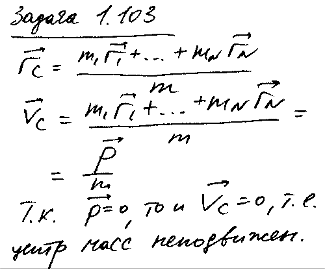 Задача 1.103
r⃗_C = (m₁r⃗₁ + ... + m_N r⃗_N) / m
V⃗_C = (m₁r⃗₁ + ... + m_N r⃗_N) / m =
= p⃗ / m
Т.к. p⃗=0, то и V⃗_C=0, т.е.
центр масс неподвижен.